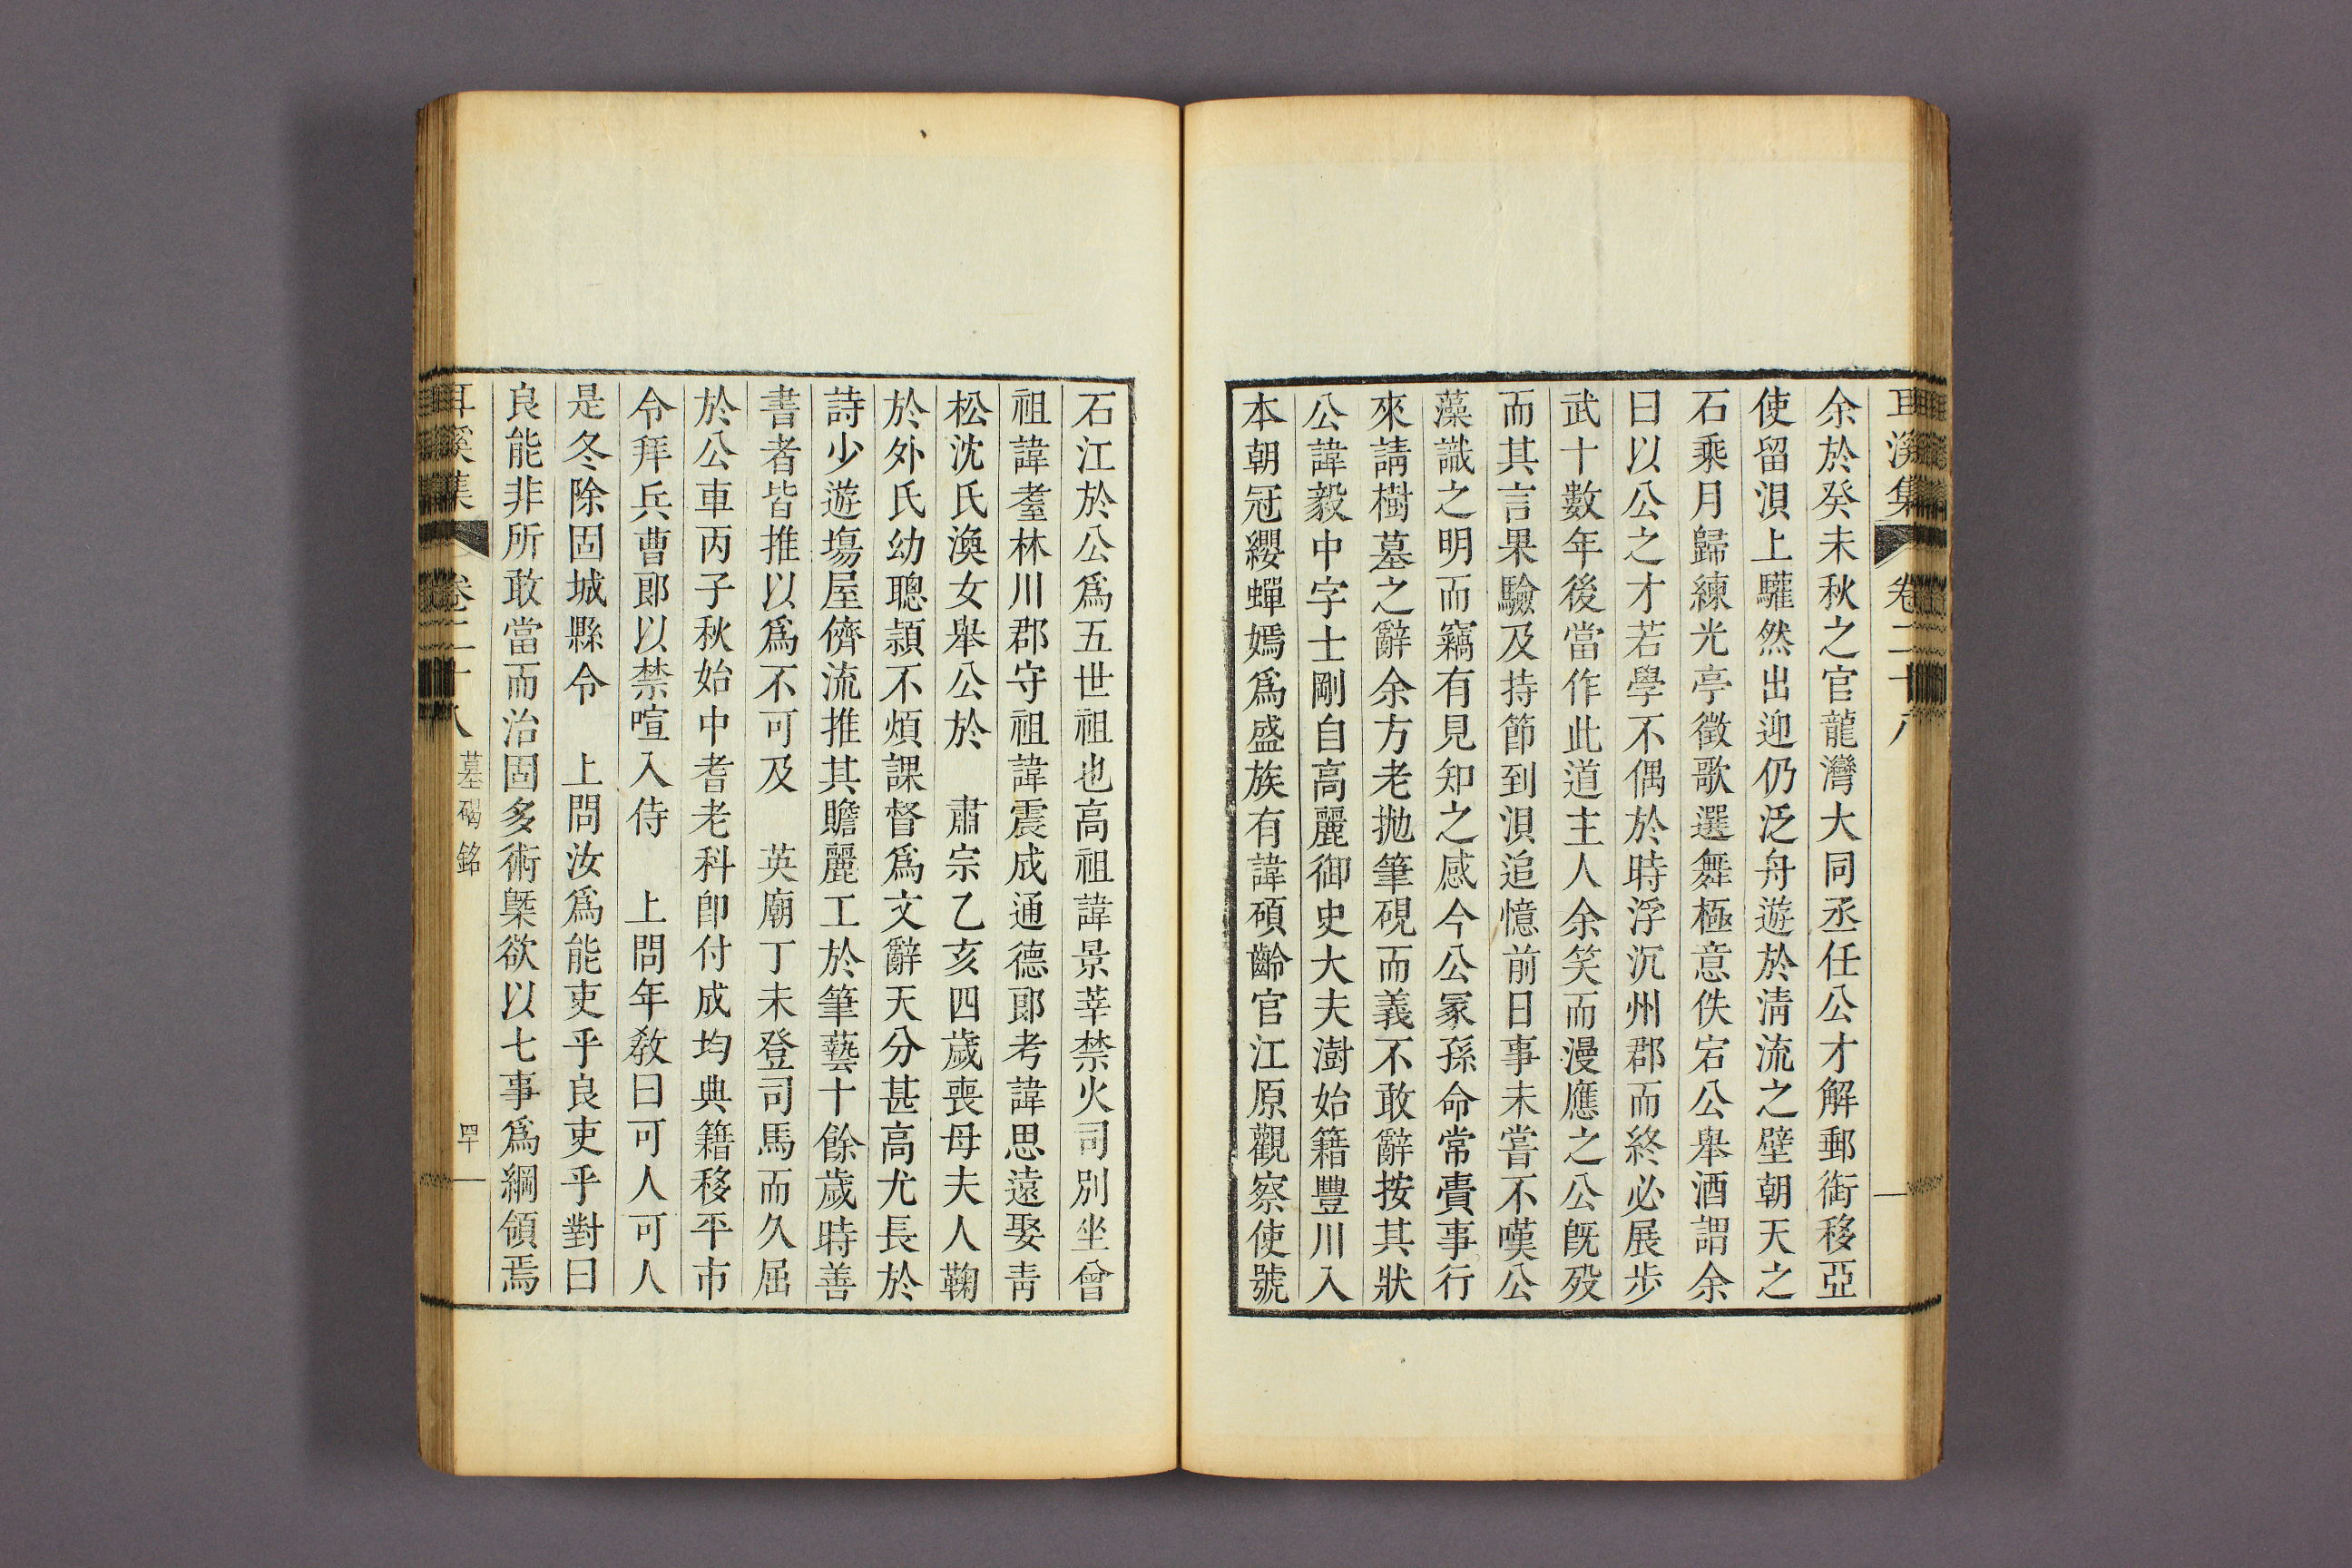 耳溪集 卷二十八
余於癸未秋之官龍灣大同丞任公才解郵銜移亞
使留浿上驩然出迎仍泛舟遊於淸流之壁朝天之
石乘月歸練光亭徵歌選舞極意佚宕公舉酒謂余
曰以公之才若學不偶於時浮沉州郡而終必展步
武十數年後當作此道主人余笑而漫應之公旣歿
而其言果驗及持節到浿追憶前日事未嘗不嘆公
藻識之明而竊有見知之感今公冢孫命常賷事行
來請樹墓之辭余方老抛筆硯而義不敢辭按其狀
公諱毅中字士剛自高麗御史大夫澍始籍豐川入
本朝冠纓蟬嫣爲盛族有諱碩齡官江原觀察使號
石江於公爲五世祖也高祖諱景莘禁火司別坐曾
祖諱耋林川郡守祖諱震成通德郎考諱思遠娶靑
松沈氏渙女舉公於 肅宗乙亥四歲喪母夫人鞠
於外氏幼聰頴不煩課督爲文辭天分甚高尤長於
詩少遊塲屋儕流推其贍麗工於筆藝十餘歲時善
書者皆推以爲不可及 英廟丁未登司馬而久屈
於公車丙子秋始中耆老科卽付成均典籍移平市
令拜兵曹郎以禁喧入侍 上問年敎曰可人可人
是冬除固城縣令 上問汝爲能吏乎良吏乎對曰
良能非所敢當而治固多術槩欲以七事爲綱領焉
耳溪集 卷二十八 墓碣銘 四十